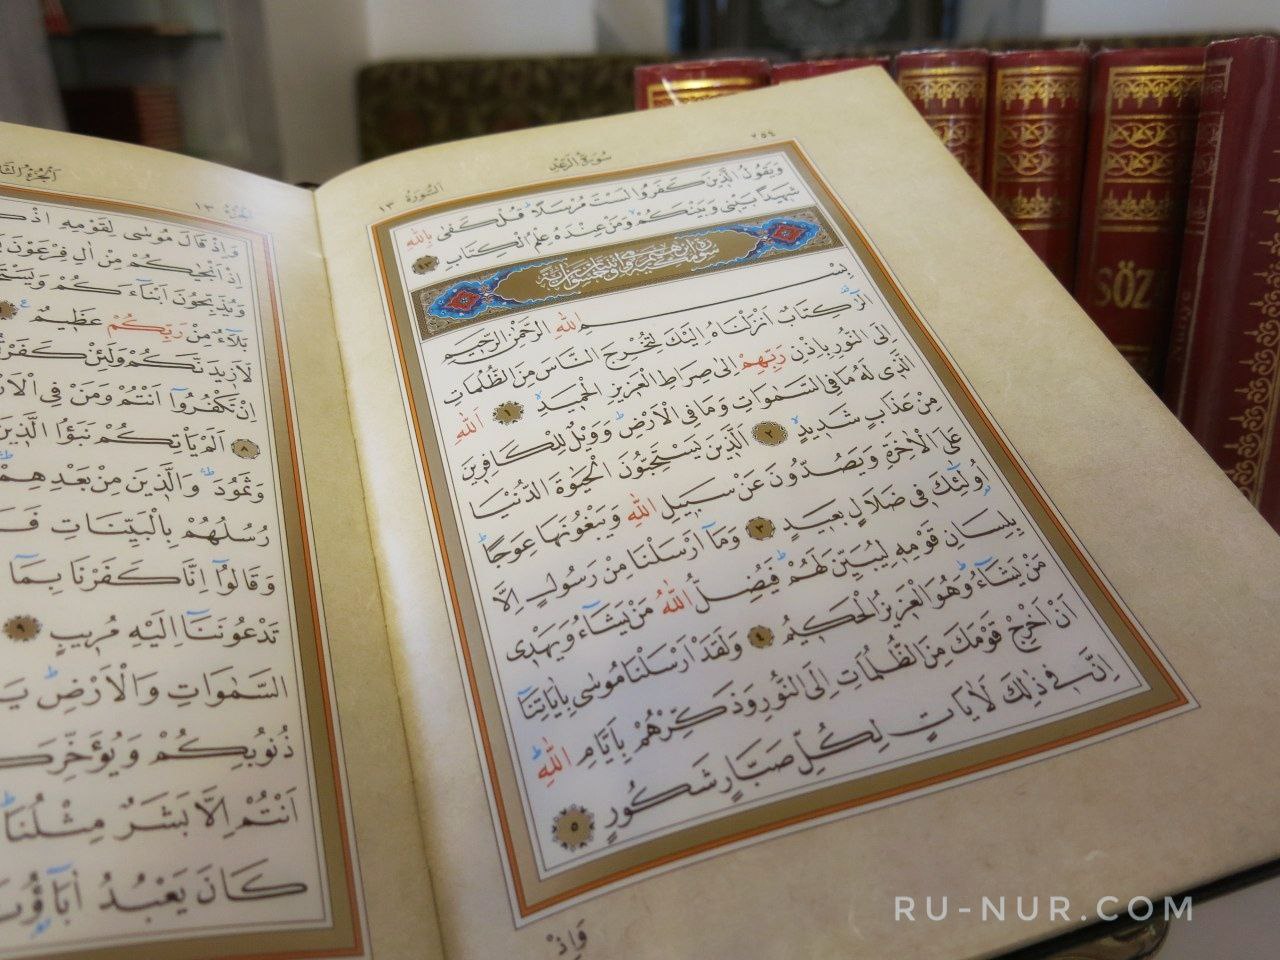 ٢٥٤
سُورَةُ الرَّعْدِ
اَلسُّورَةُ ١٣
وَيَقُولُ الَّذِينَ كَفَرُوا لَسْتَ مُرْسَلًاۜ قُلْ كَفٰى بِاللّٰهِ
شَهِيدًا بَيْنِي وَبَيْنَكُمْۙ وَمَنْ عِنْدَهُ عِلْمُ الْكِتَابِ ٤٣
بِسْــــمِ اللّٰهِ الرَّحْمٰنِ الرَّحِيمِ
الٓرٰ۠ كِتَابٌ اَنْزَلْنَاهُ اِلَيْكَ لِتُخْرِجَ النَّاسَ مِنَ الظُّلُمَاتِ
اِلَى النُّورِ بِاِذْنِ رَبِّهِمْ اِلٰى صِرَاطِ الْعَزِيزِ الْحَمِيدِۙ ١ اَللّٰهِ
الَّذِي لَهُ مَا فِي السَّمٰوَاتِ وَمَا فِي الْاَرْضِۜ وَوَيْلٌ لِلْكَافِرِينَ
مِنْ عَذَابٍ شَدِيدٍۙ ٢ اَلَّذِينَ يَسْتَحِبُّونَ الْحَيٰوةَ الدُّنْيَا
عَلَى الْاٰخِرَةِ وَيَصُدُّونَ عَنْ سَبِيلِ اللّٰهِ وَيَبْغُونَهَا عِوَجًاۜ
اُو۬لٰٓئِكَ فِي ضَلَالٍ بَعِيدٍ ٣ وَمَٓا اَرْسَلْنَا مِنْ رَسُولٍ اِلَّا
بِلِسَانِ قَوْمِهِ لِيُبَيِّنَ لَهُمْۜ فَيُضِلُّ اللّٰهُ مَنْ يَشَٓاءُ وَيَهْدِي
مَنْ يَشَٓاءُۜ وَهُوَ الْعَزِيزُ الْحَكِيمُ ٤ وَلَقَدْ اَرْسَلْنَا مُوسٰى بِاٰيَاتِنَٓا
اَنْ اَخْرِجْ قَوْمَكَ مِنَ الظُّلُمَاتِ اِلَى النُّورِ وَذَكِّرْهُمْ بِاَيَّامِ اللّٰهِۜ
اِنَّ فِي ذٰلِكَ لَاٰيَاتٍ لِكُلِّ صَبَّارٍ شَكُورٍ ٥
وَاِذْ
اَلْجُزْءُ
١٣
وَاِذْ قَالَ مُوسٰى لِقَوْمِهِ
اِذْ اَنْجٰيكُمْ مِنْ اٰلِ فِرْعَوْنَ
وَيُذَبِّحُونَ اَبْنَٓاءَكُمْ
بَلَٓاءٌ مِنْ رَبِّكُمْ عَظِيمٌ
لَاَزِيدَنَّكُمْ وَلَئِنْ
اِنْ تَكْفُرُٓوا اَنْتُمْ وَمَنْ فِي
٨ اَلَمْ يَأْتِكُمْ نَبَؤُا الَّذِينَ
وَثَمُودَۜ وَالَّذِينَ مِنْ بَعْدِهِمْۜ
رُسُلُهُمْ بِالْبَيِّنَاتِ
وَقَالُٓوا اِنَّا كَفَرْنَا بِمَٓا
تَدْعُونَنَٓا اِلَيْهِ مُرِيبٍ ٩
السَّمٰوَاتِ وَالْاَرْضِۜ
ذُنُوبِكُمْ وَيُؤَخِّرَكُمْ
اَنْتُمْ اِلَّا بَشَرٌ مِثْلُنَاۜ
كَانَ يَعْبُدُ اٰبَٓاؤُ۬نَا
SÖZ
RU-NUR.COM